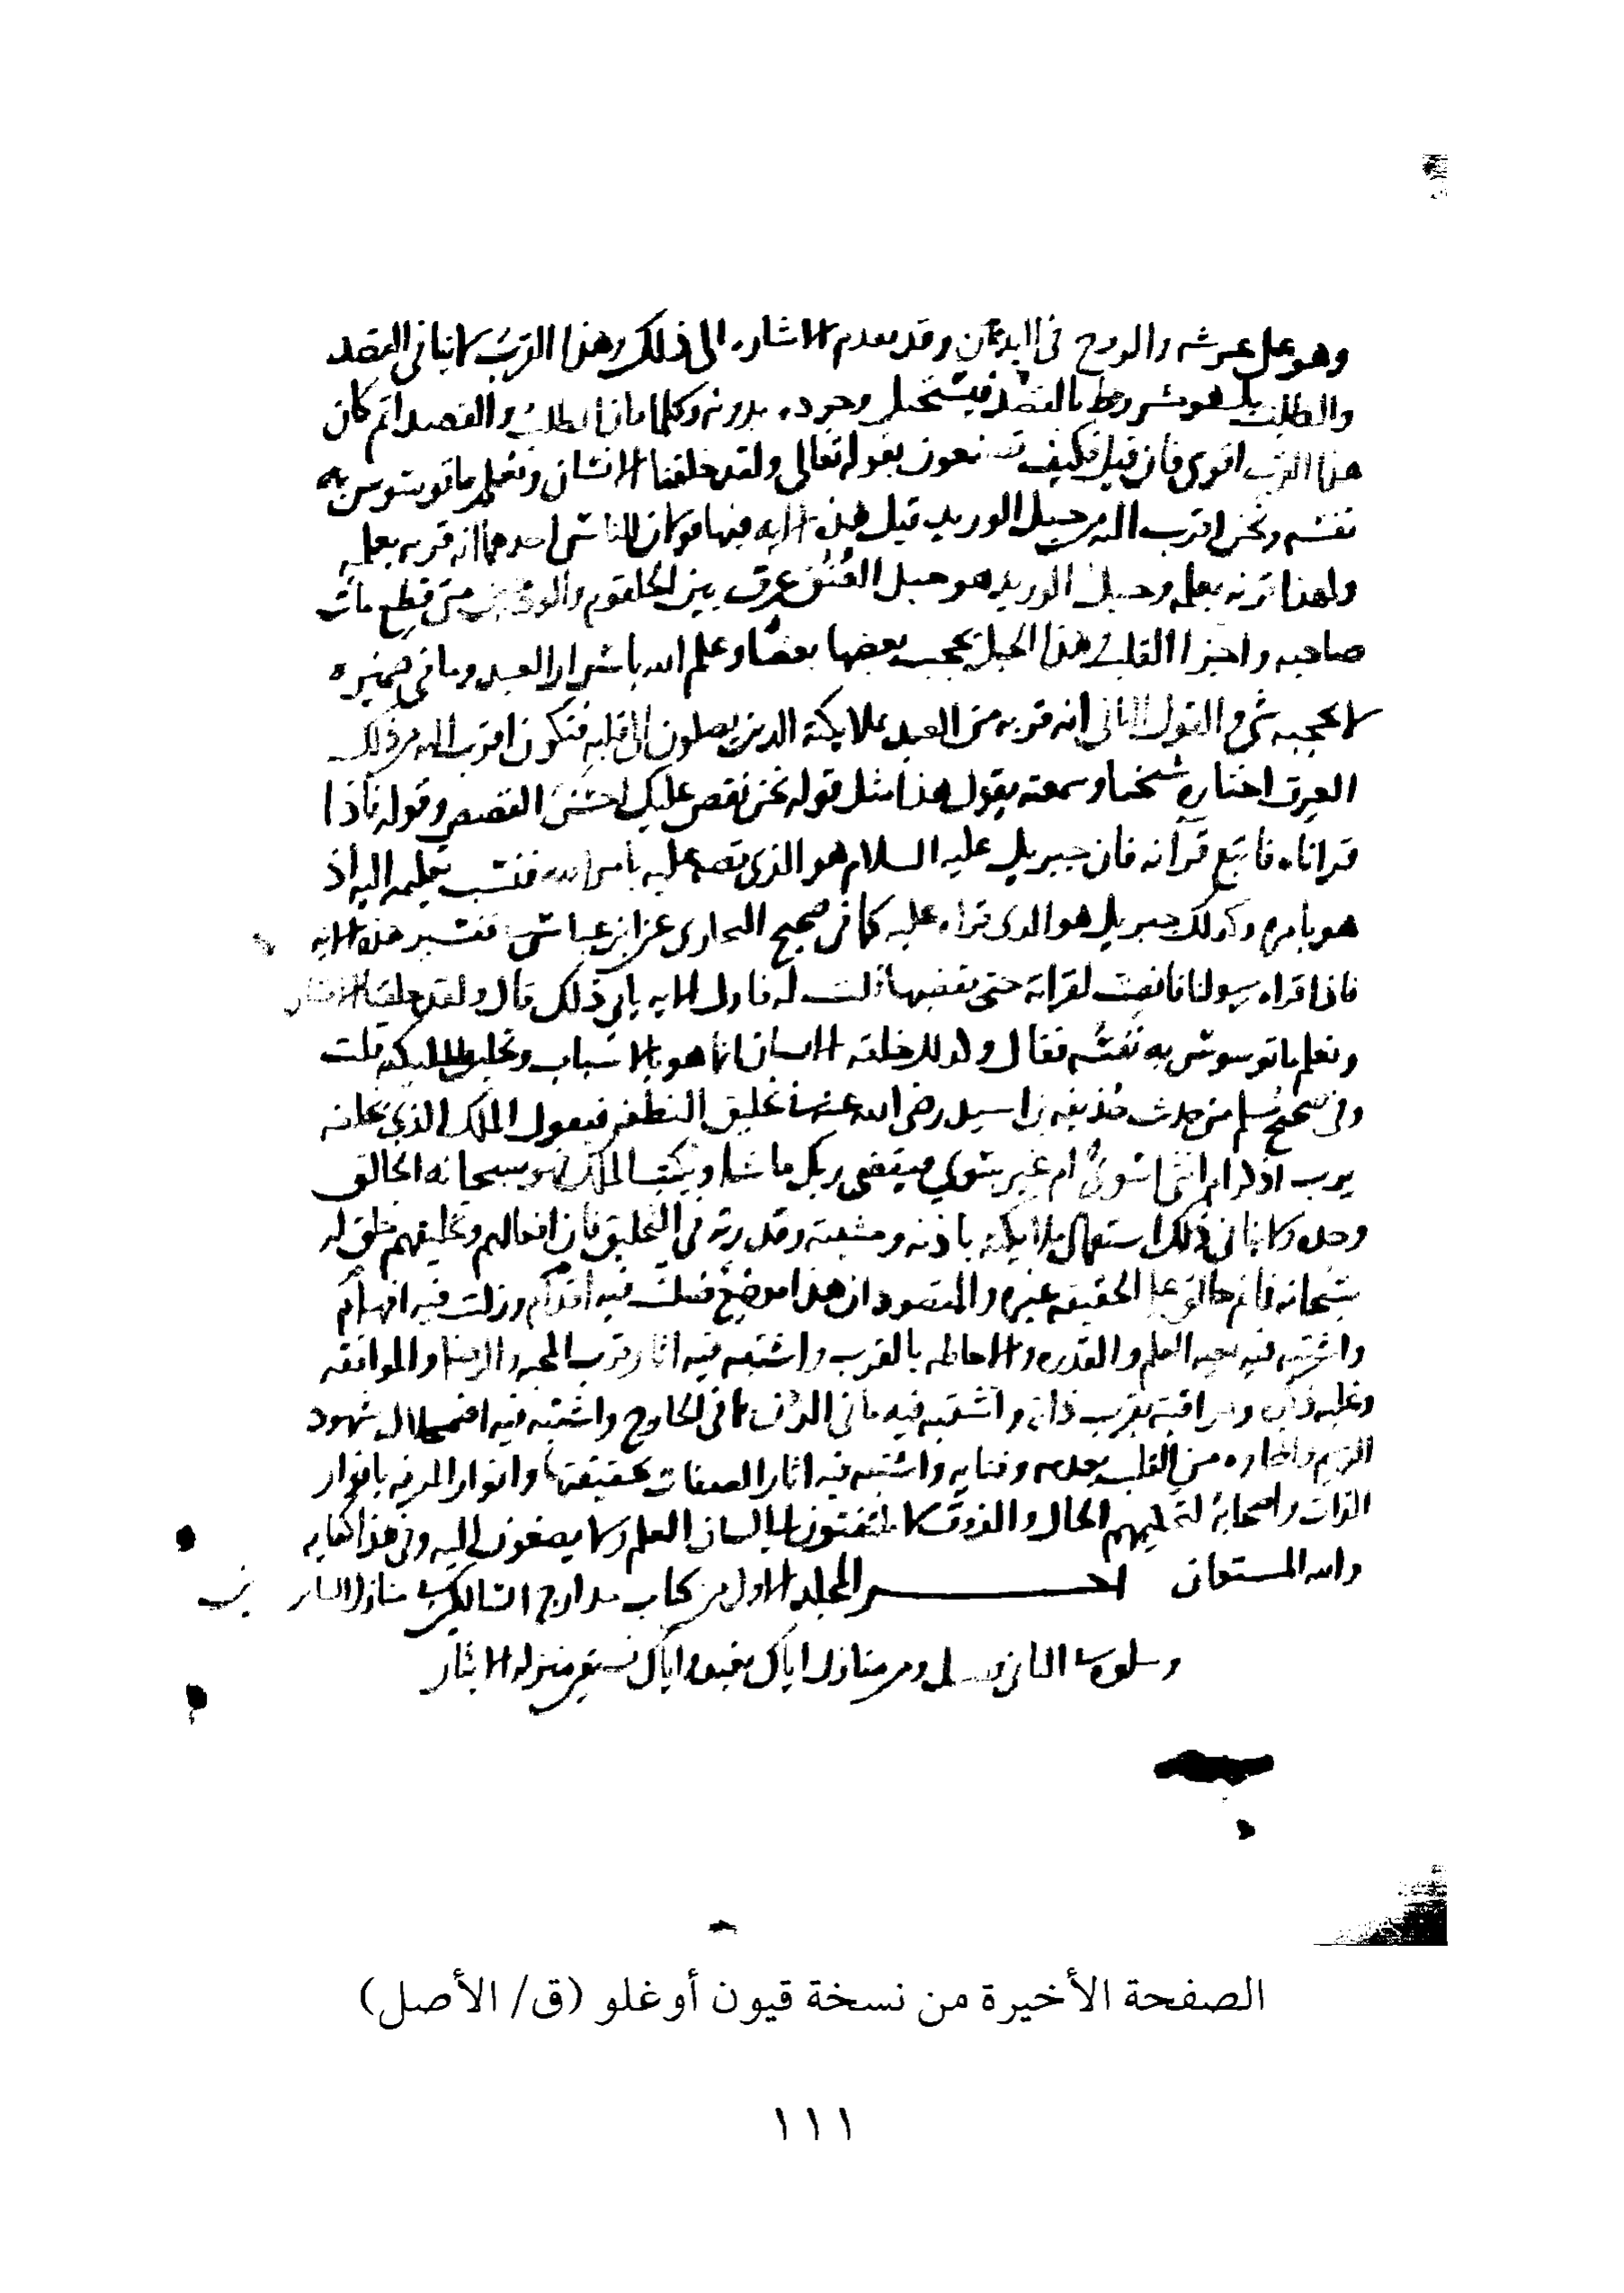 وهو على عرشه والروح في البدن وقد تقدم الاشاره الى ذلك وهذا القرب لا ينافي القصد
والطلب بل هو مشروط بالقصد فيستحيل وجوده بدونه وكلما كان الطلب والقصد اتم كان
هذا القرب اقوى فان قيل فكيف تصنعون بقوله تعالى ولقد خلقنا الانسان ونعلم ماتوسوس به
نفسه ونحن اقرب اليه من حبل الوريد قيل هذه الايه فيها قولان للناس احدهما انه قربه بعلمه
ولهذا قرنه بعلمه وحبل الوريد هو حبل العنق عرق بين الحلقوم والودجين متى قطع مات
صاحبه واجزا القلب هذا الحبل يحجب بعضها بعضا وعلم الله باسرار العبد وما في ضميره
لا يحجبه شي والقول الثاني انه قربه من العبد بملايكته الذين يصلون الى قلبه فتكون اقرب اليه من ذلك
العرق اختاره شيخنا وسمعته يقول هذا مثل قوله نحن نقص عليك احسن القصص وقوله فاذا
قراناه فاتبع قرآنه فان جبريل عليه السلام هو الذي قصه عليه بامر الله فنسب تعليمه اليه اذ
هو بامره وكذلك جبريل هو الذي قراه عليه كما في صحيح البخاري عن ابن عباس تفسير هذه الايه
فاذا قراه رسولنا فانصت لقراته حتى يقضيها قلت له فاول الايه يابي ذلك قال ولقد خلقنا الانسان
ونعلم ماتوسوس به نفسه فقال وكذلك خلقه الانسان انما هو بالاسباب وتخليق الملايكه قلت
وفي صحيح مسلم من حديث حذيفه بن اسيد رضي الله عنه في تخليق النطفه فيقول الملك الذي يخلقه
يرب اذكر ام انثى اسوي ام غير سوي فيقضي ربك ماشا ويكتب الملك فهو سبحانه الخالق
وحده ولا ينافي ذلك استعمال ملايكته باذنه ومشيئته وقدرته في التخليق فان افعالهم وتخليقهم خلق له
سبحانه فما ثم خالق على الحقيقه غيره والمقصود ان هذا موضع ضلت فيه اقدام وزلت فيه افهام
واشتبه فيه معيه العلم والقدره والاحاطه بالقرب واشتبه فيه اثار قرب المحبه والرضا والموافقه
وغلبه ذكره ومراقبته بقرب ذاته واشتبه فيه ما في الذهن بما في الخارج واشتبه فيه اضمحلال شهود
الرسم وانمحاوه من القلب بعدمه وفنايه واشتبه فيه اثار الصفات بحقيقتها وانوار المعرفه بانوار
الذات واصحابه لتحكيمهم الحال والذوق لا يلتفتون الى لسان العلم ولا يصغون اليه وفي هذا كفايه
والله المستعان اخر المجلد الاول من كتاب مدارج السالكين في منازل السايرين
ويتلوه في الثاني فصل ومن منازل اياك نعبد واياك نستعين منزله الايثار
الصفحة الأخيرة من نسخة قيون أوغلو (ق/ الأصل)
١١١